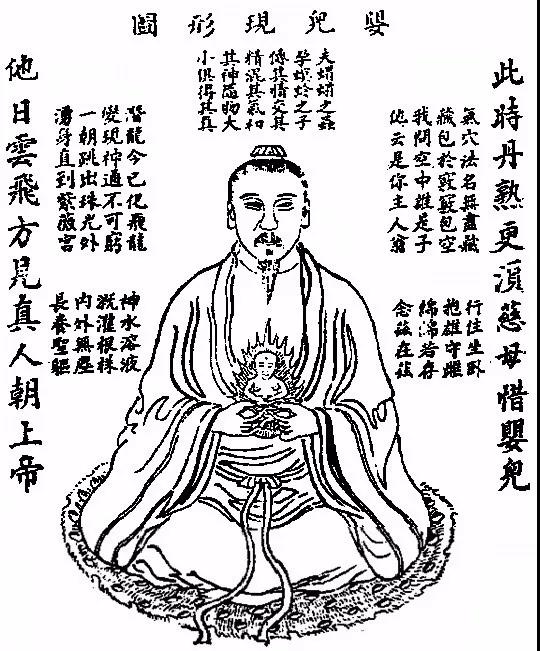 嬰兒現形圖
此時丹熟更須慈母惜嬰兒
氣穴法名無盡藏
藏包於竅竅包空
我問空中誰是子
他云是你主人翁
行住坐臥
抱雄守雌
綿綿若存
念茲在茲
夫蜾蠃之蟲
孕螟蛉之子
傳其情交其
精混其氣和
其神隨物大
小俱得其真
潛龍今已化飛龍
變現神通不可窮
一朝跳出珠光外
湧身直到紫薇宮
神水溶液
溉灌根株
內外無塵
長養聖軀
他日雲飛方見真人朝上帝